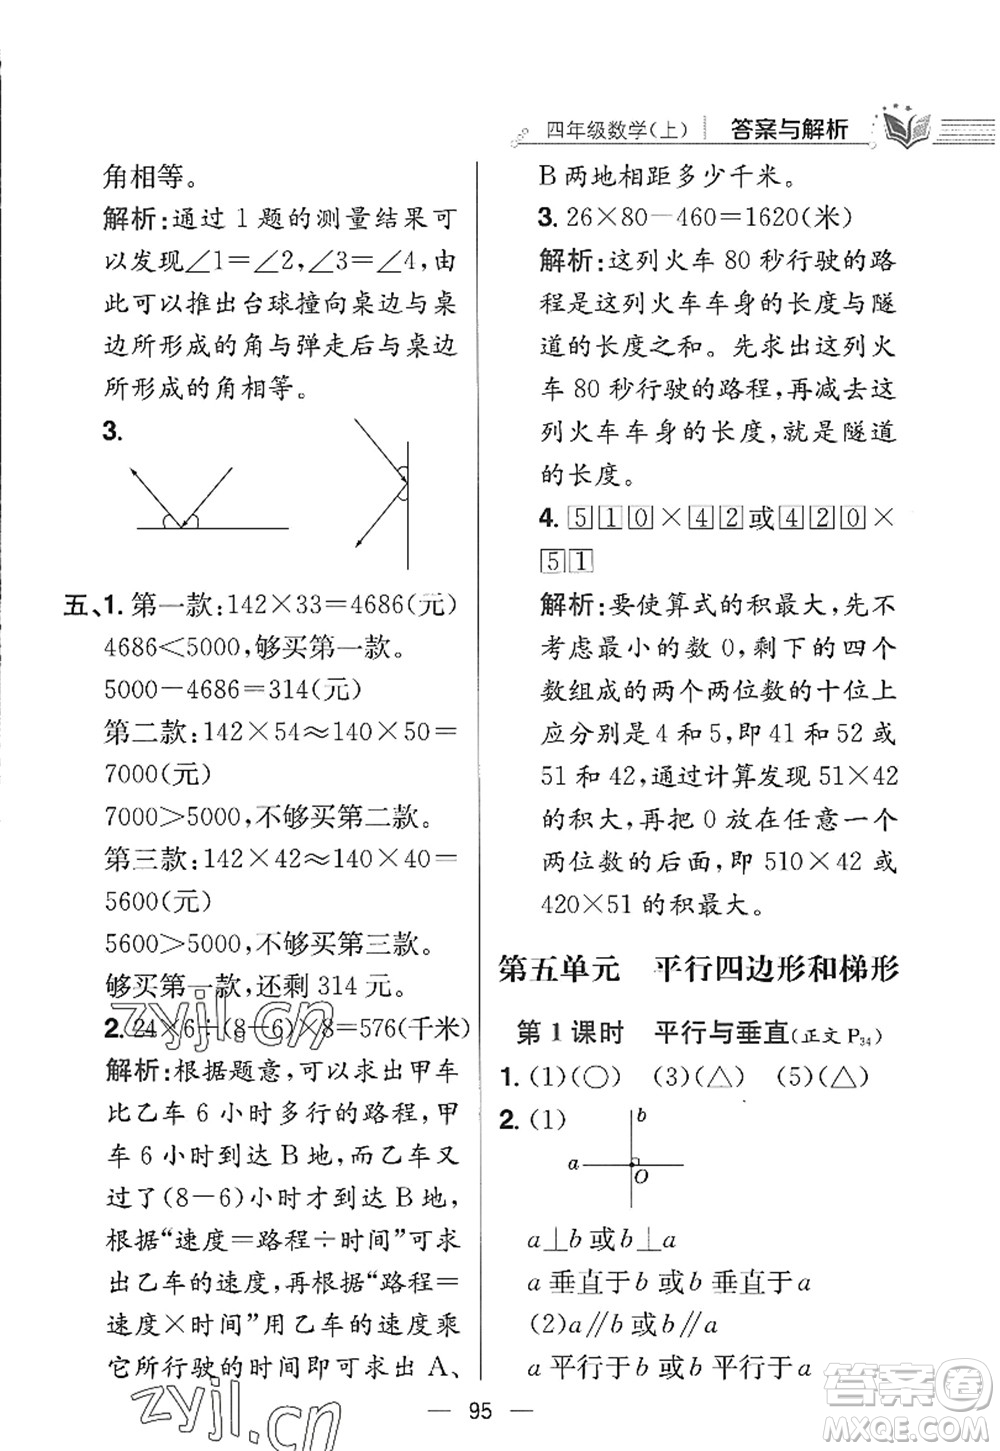 四年级数学(上) 答案与解析
角相等。
解析:通过1题的测量结果可
以发现∠1=∠2,∠3=∠4,由
此可以推出台球撞向桌边与桌
边所形成的角与弹走后与桌边
所形成的角相等。
3.
五、1.第一款:142×33=4686(元)
4686<5000,够买第一款。
5000-4686=314(元)
第二款:142×54≈140×50=
7000(元)
7000>5000,不够买第二款。
第三款:142×42≈140×40=
5600(元)
5600>5000,不够买第三款。
够买第一款,还剩314元。
2.24×6÷(8-6)×8=576(千米)
解析:根据题意,可以求出甲车
比乙车6小时多行的路程,甲
车6小时到达B地,而乙车又
过了(8-6)小时才到达B地,
根据“速度=路程÷时间”可求
出乙车的速度,再根据“路程=
速度×时间”用乙车的速度乘
它所行驶的时间即可求出A、
B两地相距多少千米。
3.26×80-460=1620(米)
解析:这列火车80秒行驶的路
程是这列火车车身的长度与隧
道的长度之和。先求出这列火
车80秒行驶的路程,再减去这
列火车车身的长度,就是隧道
的长度。
4.510×42或420×
51
解析:要使算式的积最大,先不
考虑最小的数0,剩下的四个
数组成的两个两位数的十位上
应分别是4和5,即41和52或
51和42,通过计算发现51×42
的积大,再把0放在任意一个
两位数的后面,即510×42或
420×51的积最大。
第五单元 平行四边形和梯形
第1课时 平行与垂直(正文P34)
1.(1)(○) (3)(△) (5)(△)
2.(1)
b
a
O
a⊥b或b⊥a
a垂直于b或b垂直于a
(2)a∥b或b∥a
a平行于b或b平行于a
95
zyjl.cn
zyjl.cn
答案圈
MXQE.COM